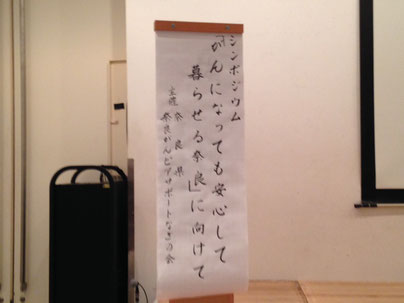 シンポジウム
「がんになっても安心して
暮らせる奈良」に向けて
主催 奈良県
奈良がんピアサポートなぎの会